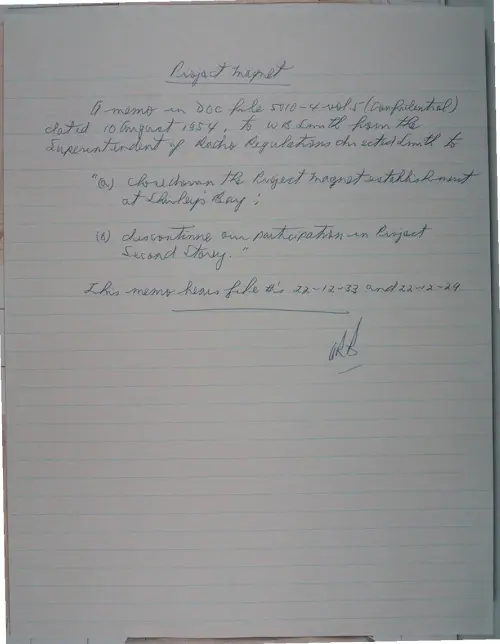 Project Magnet
A memo in DOC file 5010-4 vol 5 (Confidential)
dated 10 August 1954, to W B Smith from the
Superintendent of Radio Regulations directed Smith to
"(a) close down the Project Magnet establishment
at Shirley's Bay;
(b) discontinue our participation in Project
Second Storey."
This memo bears file #'s 22-12-33 and 22-12-29.